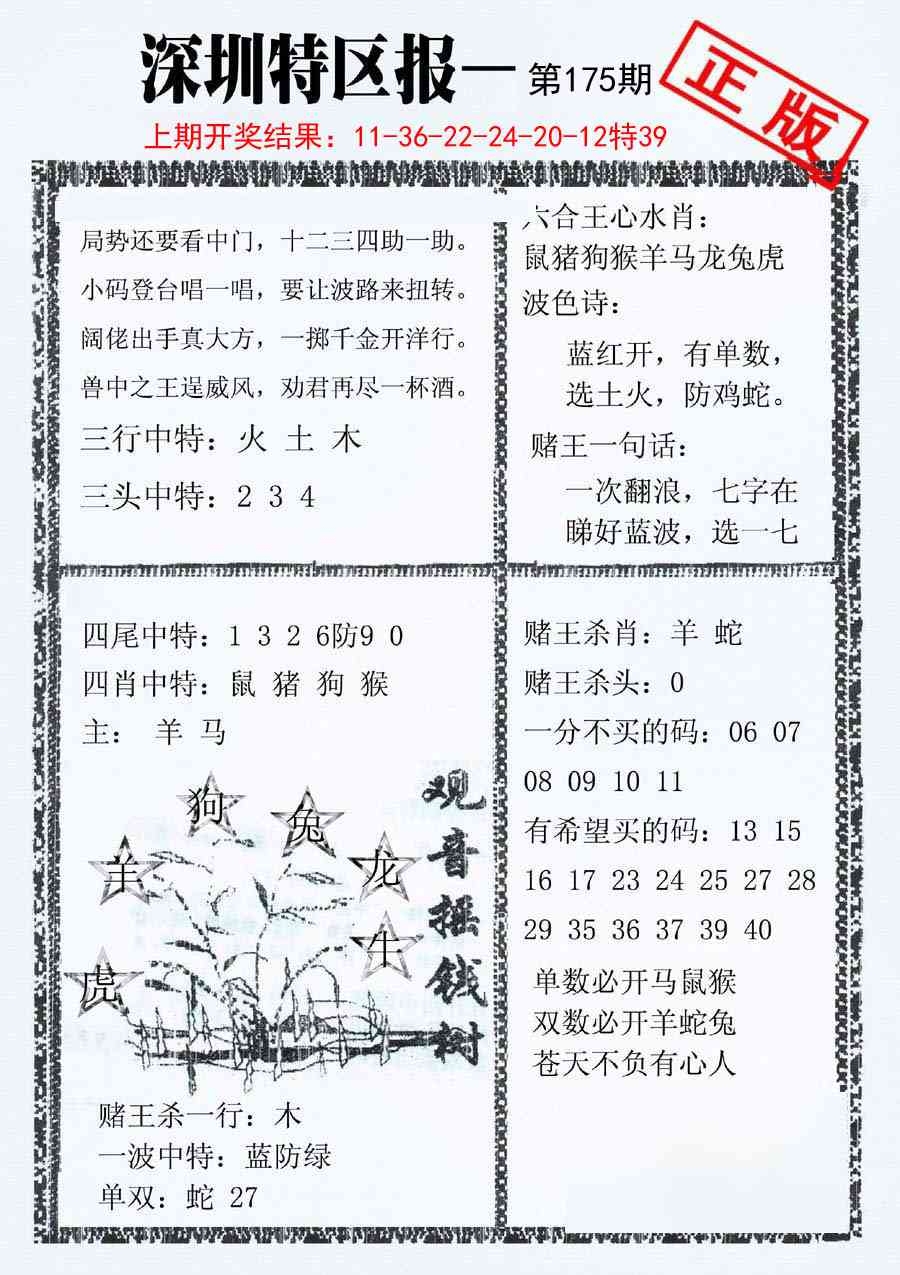 深圳特区报一 第175期
正版
上期开奖结果：11-36-22-24-20-12特39
局势还要看中门，十二三四助一助。
小码登台唱一唱，要让波路来扭转。
阔佬出手真大方，一掷千金开洋行。
兽中之王逞威风，劝君再尽一杯酒。
三行中特：火 土 木
三头中特：2 3 4
六合王心水肖：
鼠猪狗猴羊马龙兔虎
波色诗：
蓝红开，有单数，
选土火，防鸡蛇。
赌王一句话：
一次翻浪，七字在
睇好蓝波，选一七
四尾中特：1 3 2 6防9 0
四肖中特：鼠 猪 狗 猴
主： 羊 马
狗
兔
羊
龙
牛
虎
观音摇钱树
赌王杀一行：木
一波中特：蓝防绿
单双：蛇 27
赌王杀肖：羊 蛇
赌王杀头：0
一分不买的码：06 07
08 09 10 11
有希望买的码：13 15
16 17 23 24 25 27 28
29 35 36 37 39 40
单数必开马鼠猴
双数必开羊蛇兔
苍天不负有心人